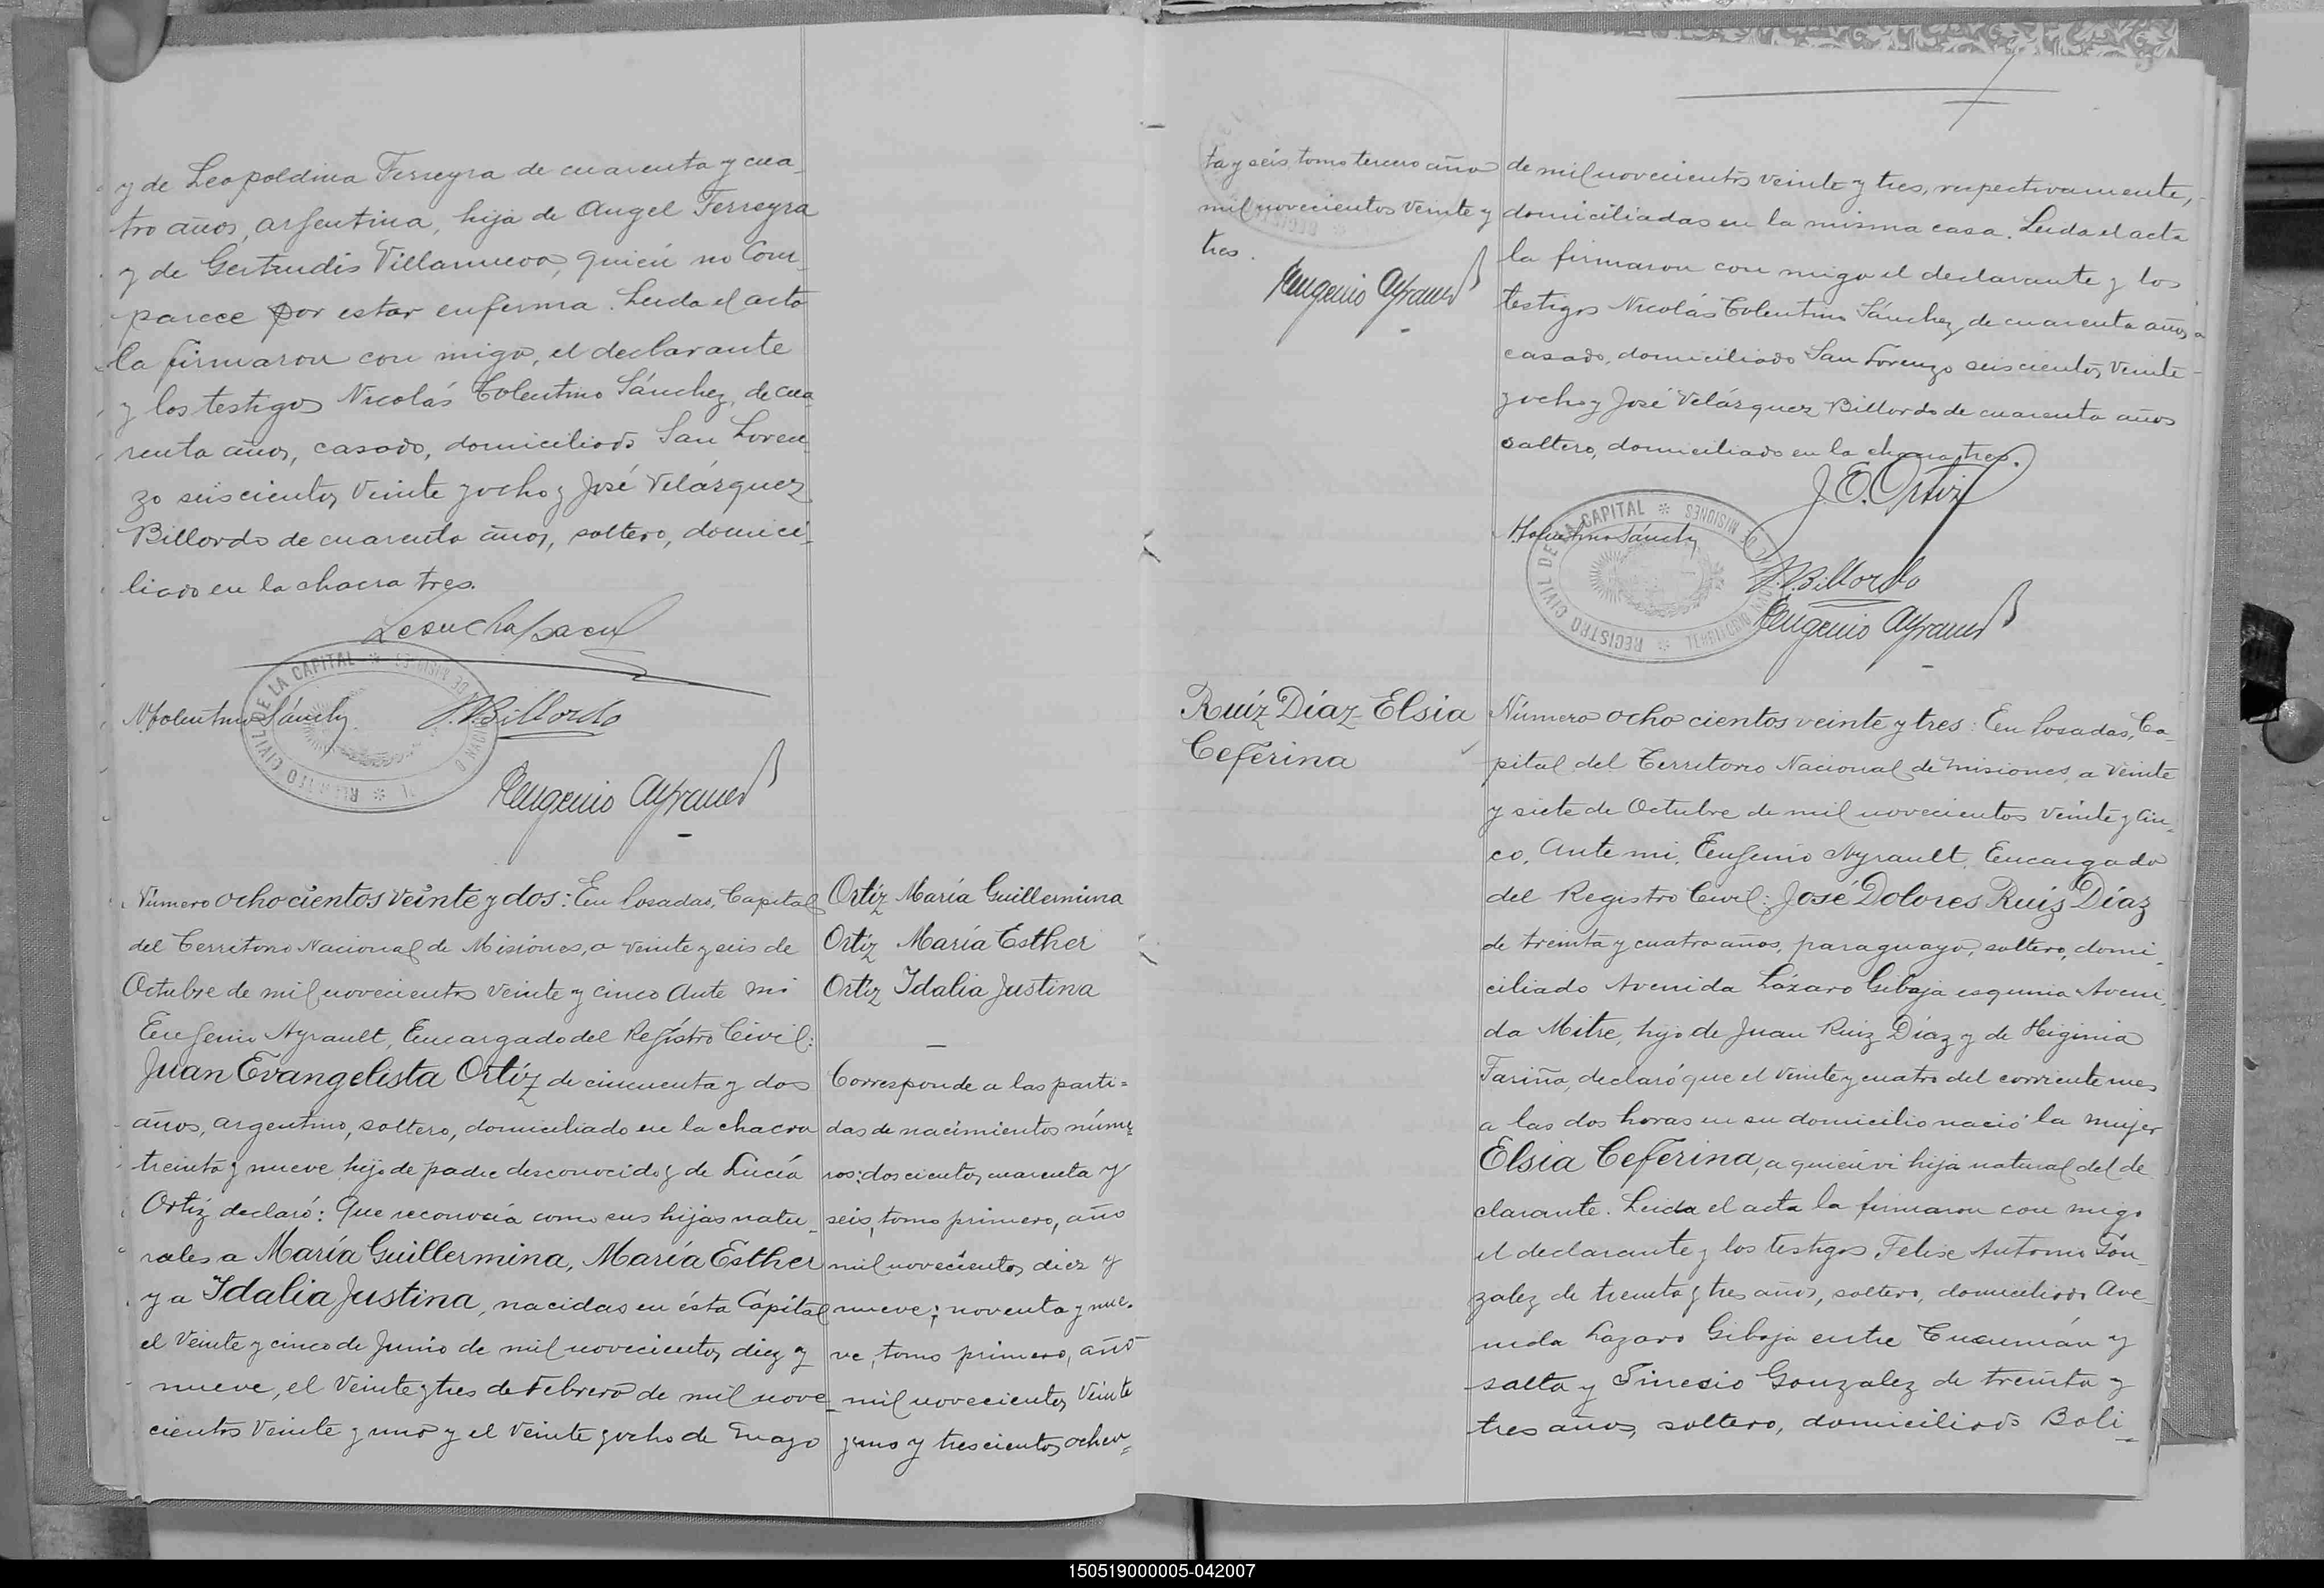 y de Leopoldina Ferreyra de cuarenta y cua-
tro años, argentina, hija de Angel Ferreyra
y de Gertrudis Villanueva, quién no Com-
parece por estar enferma. Leida el acta
la firmaron con migo, el declarante
y los testigos Nicolás Tolentino Sánchez, de cua-
renta años, casado, domiciliado San Loren-
zo seiscientos veinte y ocho y José Velásquez
Billordo de cuarenta años, soltero, domici-
liado en la chacra tres.
REGISTRO CIVIL DE LA CAPITAL
N. Tolentino Sánchez
J. V. Billordo
Eugenio Ayrault
Número ochocientos veinte y dos: En Posadas, Capital
del Territorio Nacional de Misiones, a veinte y seis de
Octubre de mil novecientos veinte y cinco Ante mi
Eugenio Ayrault, Encargado del Registro Civil:
Juan Evangelista Ortíz de cincuenta y dos
años, argentino, soltero, domiciliado en la chacra
treinta y nueve, hijo de padre desconocido y de Lucía
Ortíz declaró: Que reconocía como sus hijas natu-
rales a María Guillermina, María Esther
y a Idalia Justina, nacidas en ésta Capital
el veinte y cinco de Junio de mil novecientos diez y
nueve, el veinte y tres de Febrero de mil nove-
cientos veinte y uno y el veinte y ocho de Mayo
Ortíz María Guillermina
Ortíz María Esther
Ortíz Idalia Justina
Corresponde a las parti=
das de nacimientos núme=
ros: doscientos cuarenta y
seis, tomo primero, año
mil novecientos diez y
nueve; noventa y nue-
ve, tomo primero, año
mil novecientos veinte
y uno y trescientos ochen=
ta y seis tomo tercero año
mil novecientos veinte y
tres.
Eugenio Ayrault
de mil novecientos veinte y tres, respectivamente,
domiciliadas en la misma casa. Leida el acta
la firmaron con migo el declarante y los
testigos Nicolás Tolentino Sánchez, de cuarenta años,
casado, domiciliado San Lorenzo seiscientos veinte
y ocho y José Velásquez Billordo de cuarenta años
soltero, domiciliado en la chacra tres.
J. E. Ortiz
N. Tolentino Sánchez
REGISTRO CIVIL DE LA CAPITAL * TERRITORIO NACIONAL DE MISIONES *
J. V. Billordo
Eugenio Ayrault
Ruíz Díaz Elsia
Ceferina
Número ochocientos veinte y tres: En Posadas, Ca-
pital del Territorio Nacional de Misiones, a veinte
y siete de Octubre de mil novecientos veinte y cin=
co. Ante mi, Eugenio Ayrault, Encargado
del Registro Civil: José Dolores Ruíz Díaz
de treinta y cuatro años, paraguayo, soltero, domi-
ciliado Avenida Lázaro Gibaja esquina Aveni-
da Mitre, hijo de Juan Ruiz Díaz y de Higinia
Fariña, declaró que el veinte y cuatro del corriente mes
a las dos horas en su domicilio nació la mujer
Elsia Ceferina, a quien vi hija natural del de-
clarante. Leida el acta la firmaron con migo
el declarante y los testigos Felix Antonio Gon-
zalez de treinta y tres años, soltero, domiciliado Ave-
nida Lazaro Gibaja entre Tucumán y
Salta y Sinecio Gonzalez de treinta y
tres años, soltero, domiciliado Boli-
150519000005-042007